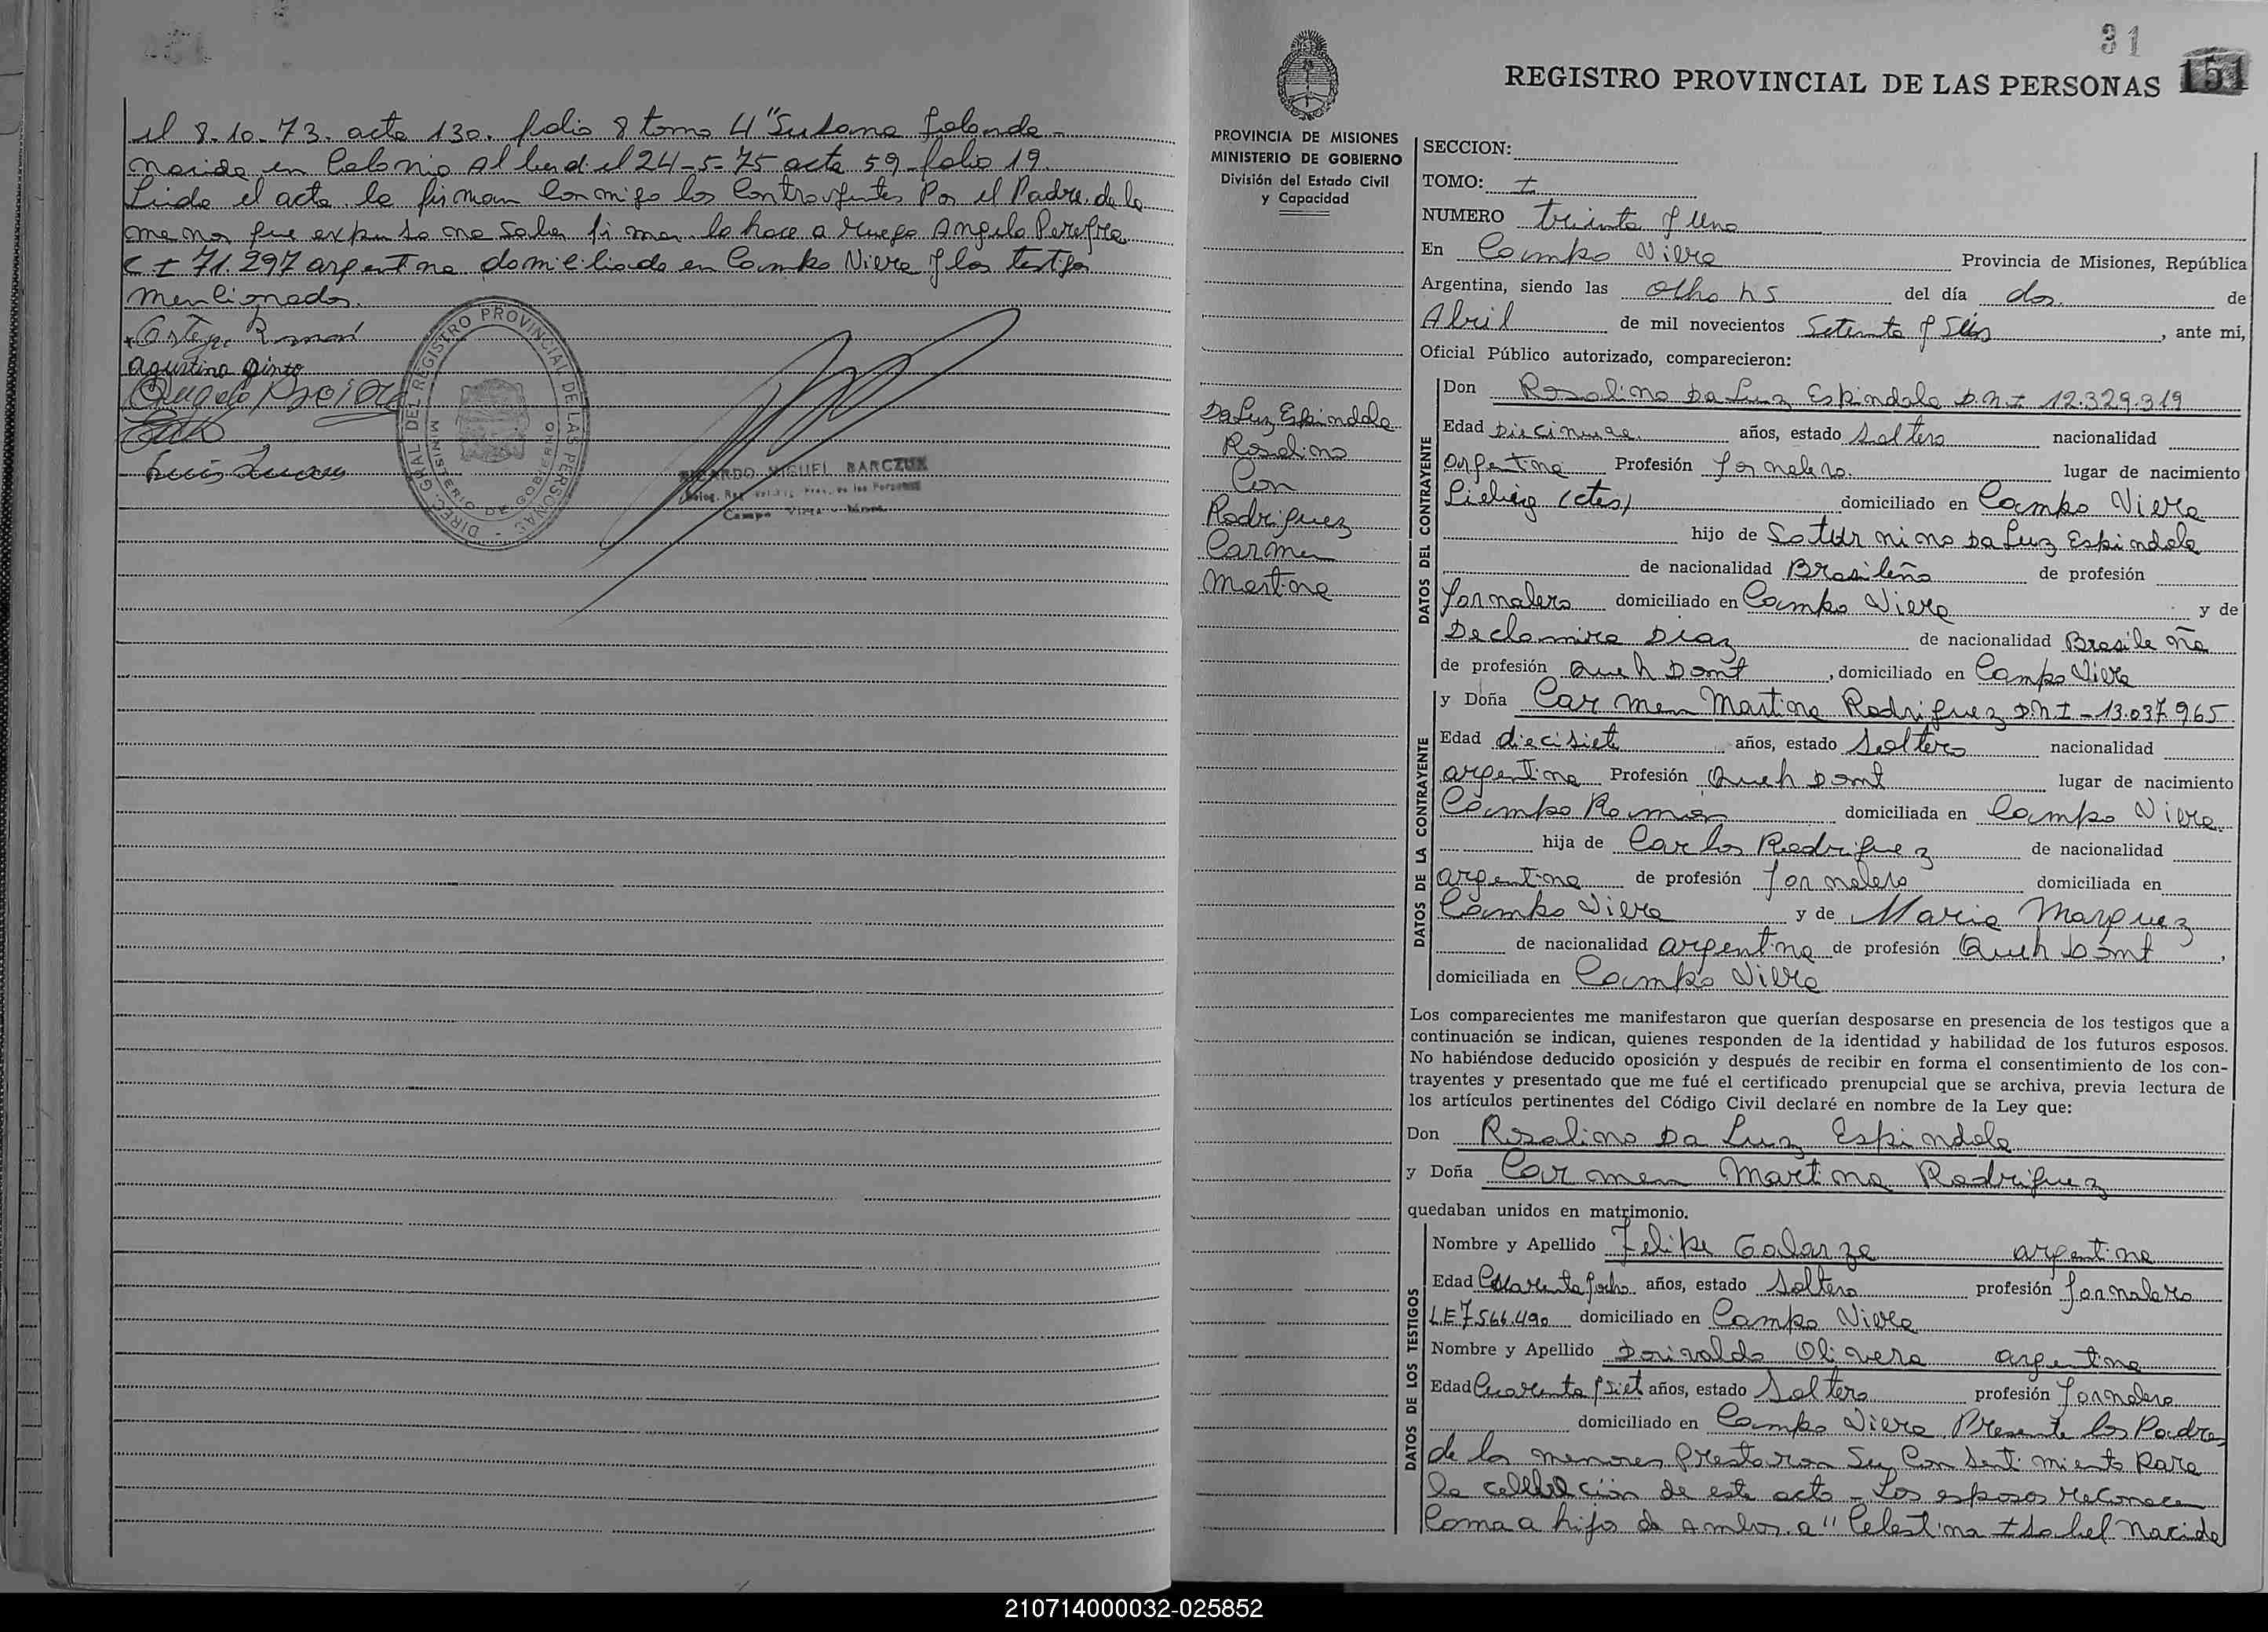 el 8-10-73. acta 130. folio 8 tomo 4 "Susana
nacida en Colonia Alberdi el 24-5-75 acta 59 folio 19.
Leida el acta la firman conmigo los Contrayentes Por el Padre de la
menor que expuso no saber firmar lo hace a ruego Angelo
C I 71.297 argentino domiciliado en Campo Viera y los testigos
mencionados.
Ortega Ramón
agustina Pinto
Angelo
Luis
DIREC. GRAL DEL REGISTRO PROVINCIAL DE LAS PERSONAS
MINISTERIO DE GOBIERNO
RICARDO MIGUEL BARCZUK
Campo Viera - Mnes.
31
151
REGISTRO PROVINCIAL DE LAS PERSONAS
PROVINCIA DE MISIONES
MINISTERIO DE GOBIERNO
División del Estado Civil
y Capacidad
Da Luz Espindola
Rosalino
Con
Rodriguez
Carmen
Martina
SECCION:
TOMO: I
NUMERO treinta y Uno
En Campo Viera Provincia de Misiones, República
Argentina, siendo las Ocho hs del día dos de
Abril de mil novecientos Setenta y Seis, ante mi,
Oficial Público autorizado, comparecieron:
DATOS DEL CONTRAYENTE
Don Rosalino Da Luz Espindola D.N.I 12.329.319
Edad Diecinueve años, estado Soltero nacionalidad
argentina Profesión Jornalero. lugar de nacimiento
Liebig (ctes) domiciliado en Campo Viera
hijo de Saturnino Da Luz Espindola
de nacionalidad Brasileña de profesión
Jornalero domiciliado en Campo Viera y de
Declamira Diaz de nacionalidad Brasileña
de profesión Queh Domt, domiciliado en Campo Viera
DATOS DE LA CONTRAYENTE
y Doña Carmen Martina Rodriguez D.N.I - 13.037.965
Edad diecisiete años, estado Soltera nacionalidad
argentina Profesión Queh Domt lugar de nacimiento
Campo Ramon domiciliada en Campo Viera
hija de Carlos Rodriguez de nacionalidad
argentina de profesión Jornalero domiciliada en
Campo Viera y de Maria Marquez
de nacionalidad argentina de profesión Queh Domt,
domiciliada en Campo Viera
Los comparecientes me manifestaron que querían desposarse en presencia de los testigos que a
continuación se indican, quienes responden de la identidad y habilidad de los futuros esposos.
No habiéndose deducido oposición y después de recibir en forma el consentimiento de los con-
trayentes y presentado que me fué el certificado prenupcial que se archiva, previa lectura de
los artículos pertinentes del Código Civil declaré en nombre de la Ley que:
Don Rosalino Da Luz Espindola
y Doña Carmen Martina Rodriguez
quedaban unidos en matrimonio.
DATOS DE LOS TESTIGOS
Nombre y Apellido Felipe Galarza argentina
Edad Cuarenta y ocho años, estado Soltero profesión Jornalero
L.E 7.566.490 domiciliado en Campo Viera
Nombre y Apellido Dorivaldo Olivera argentina
Edad Cuarenta y siet años, estado Soltero profesión Jornalero
domiciliado en Campo Viera. Presente los Padres
de los menores Prestaron Su Consentimiento Para
la celebración de este acto - Los esposos reconocen
Como a hijos de Ambos a "Celestina Isabel nacida
210714000032-025852